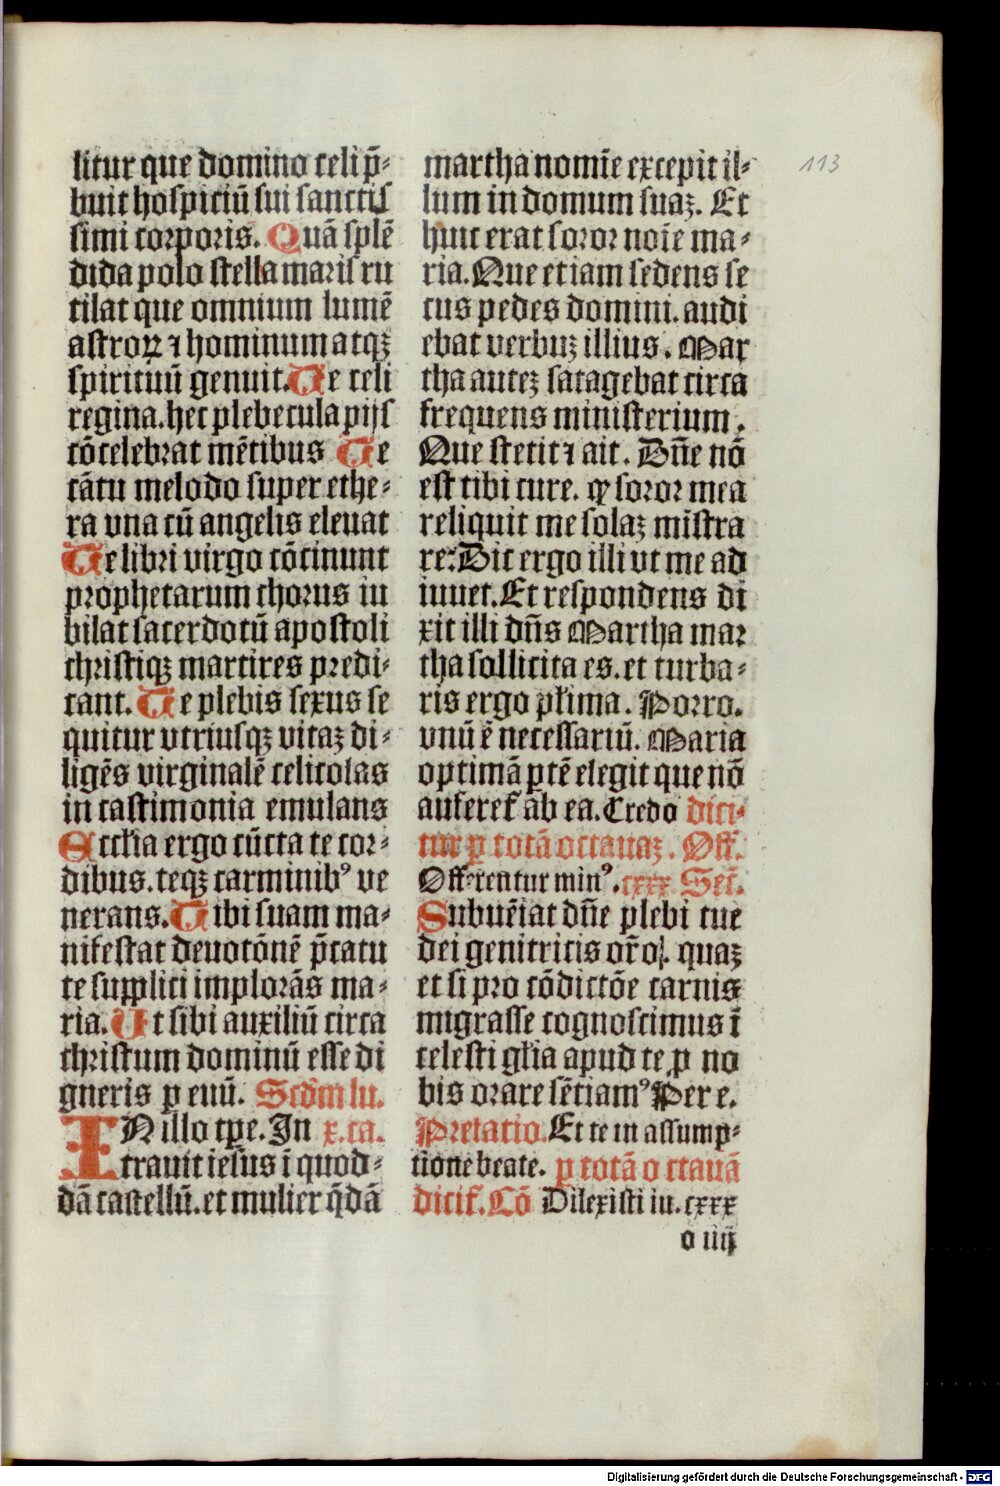 litur que domino celi p̄⸗
buit hospiciū sui sanctis
simi corporis. Quā splē
dida polo stella maris ru
tilat que omnium lumē
astroꝝ ⁊ hominum atqꝫ
spirituū genuit. Te celi
regina. hec plebecula pijs
cōcelebrat mētibus Te
cātu melodo super ethe⸗
ra vna cū angelis eleuat
Te libri virgo cōcinunt
prophetarum chorus iu
bilat sacerdotū apostoli
christiqꝫ martires predi⸗
cant. Te plebis sexus se
quitur vtriusqꝫ vitaꝫ di⸗
ligēs virginalē celicolas
in castimonia emulans
Eccl̄ia ergo cūcta te cor⸗
dibus. teqꝫ carminibꝰ ve
nerans. Tibi suam ma⸗
nifestat deuotōnē p̄catu
te supplici implorās ma⸗
ria. Ut sibi auxiliū circa
christum dominū esse di
gneris ꝑ euū. Scd̄m lu.
IN illo tꝑe. In x. ca.
trauit iesus ī quod⸗
dā castellū. et mulier q̄dā
martha nomīe excepit il⸗
lum in domum suaꝫ. Et
huic erat soror noīe ma⸗
ria. Que etiam sedens se
cus pedes domini. audi
ebat verbuꝫ illius. Mar
tha auteꝫ satagebat circa
frequens ministerium.
Que stetit ⁊ ait. Dn̄e nō
est tibi cure. ꝙ soror mea
reliquit me solaꝫ mīstra
re: Dic ergo illi vt me ad
iuuet. Et respondens di
xit illi dn̄s Martha mar
tha sollicita es. et turba⸗
ris ergo pl̄ima. Porro.
vnū ē necessariū. Maria
optimā ꝑtē elegit que nō
auferet᷑ ab ea. Credo dici⸗
tur ꝑ totā octauaꝫ. Off̄.
Offerentur minꝰ. cxxx Secͬ.
Subuēiat dn̄e plebi tue
dei genitricis or̄o. quaꝫ
et si pro cōdictōe carnis
migrasse cognoscimus ī
celesti gl̄ia apud te ꝑ no
bis orare sētiamꝰ Per e.
Prefatio. Et te in assump⸗
tione beate. ꝑ totā octauā
dicit᷑. Cō Dilexisti iu. cxxx
o iiij
113
Digitalisierung gefördert durch die Deutsche Forschungsgemeinschaft - DFG